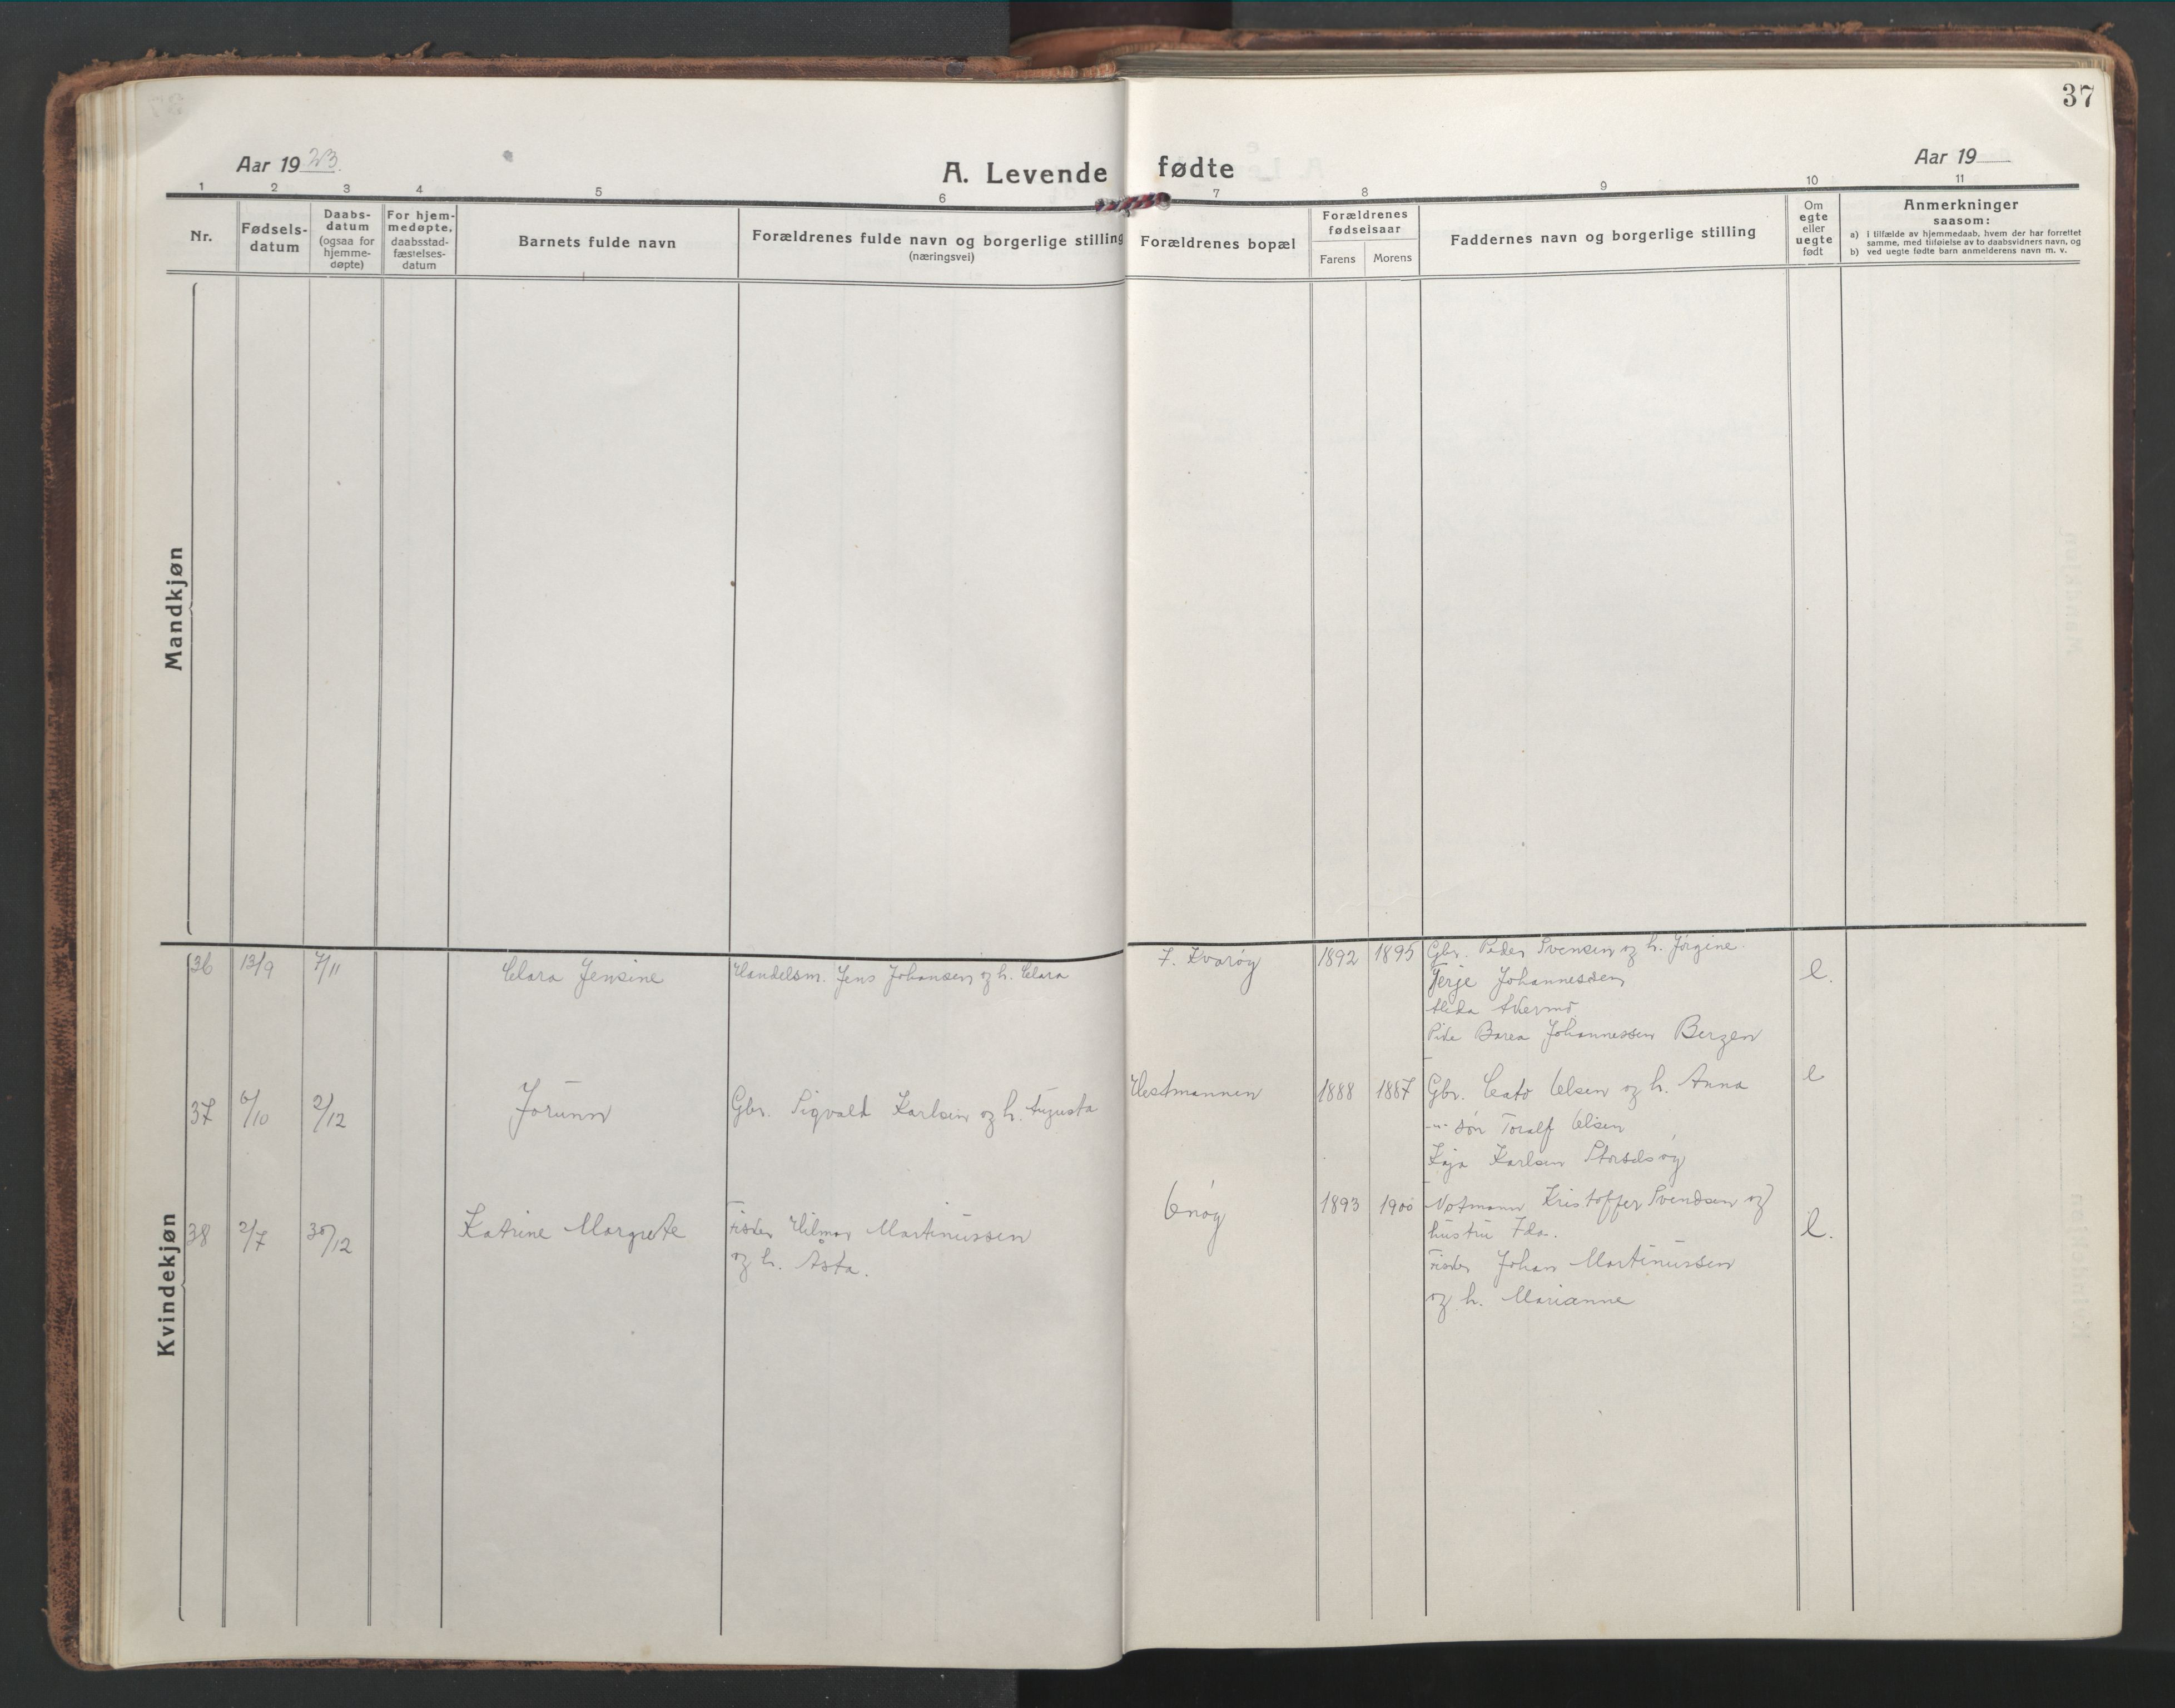 37
Aar 1923.
A. Levende fødte
Aar 19
1 2 3 4 5 6 7 8 9 10 11
Nr.
Fødsels-
datum
Daabs-
datum
(ogsaa for
hjemme-
døpte)
For hjem-
medøpte,
daabsstad-
fæstelses-
datum
Barnets fulde navn
Forældrenes fulde navn og borgerlige stilling
(næringsvei)
Forældrenes bopæl
Forældrenes
fødselsaar
Farens Morens
Faddernes navn og borgerlige stilling
Om
egte
eller
uegte
født
Anmerkninger
saasom:
a) i tilfælde av hjemmedaab, hvem der har forrettet
samme, med tilføielse av to daabsvidners navn, og
b) ved uegte fødte barn anmelderens navn m. v.
Mandkjøn
Kvindekjøn
36 13/9 7/11 Clara Jensine Handelsm. Jens Johansen og h. Clara 1892 1895 Gbr. Peder Svensen og h. Jørgine. e.
Terje Johannessen
Johannessen Bergen
37 6/10 2/12 Jorunn Gbr. Sigvald Karlsen og h. Augusta Hestmannen 1888 1887 Gbr. Cato Olsen og h. Anna e
-"- søn Toralf Olsen
Kaja Karlsen Storselsøy
38 2/7 30/12 Katrine Margrete Fisker Hilmar Martinussen Onøy 1893 1900 Notmann Kristoffer Svendsen og e.
og h. Åsta. hustru Ida.
Fisker Johan Martinussen
og h. Marianne